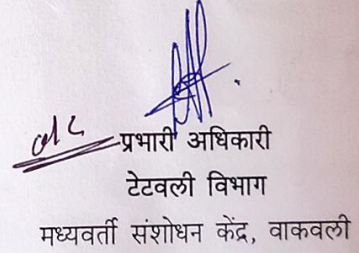 प्रभारी अधिकारी
टेटवली विभाग
मध्यवर्ती संशोधन केंद्र, वाकवली